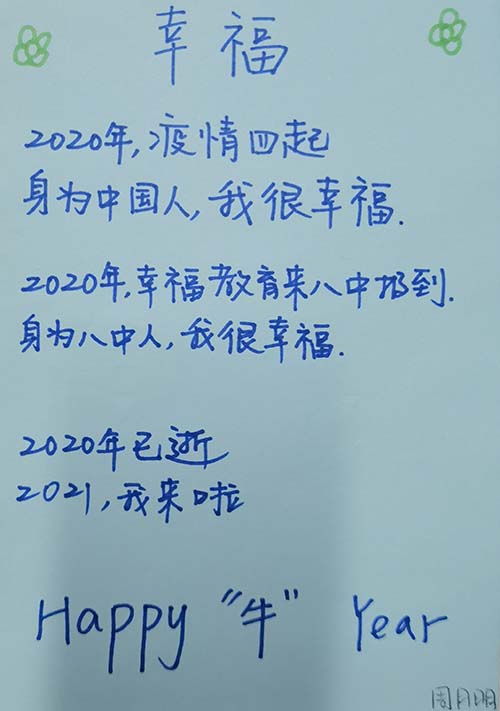 幸福
2020年,疫情四起
身为中国人,我很幸福.
2020年,幸福教育来八中报到.
身为八中人,我很幸福.
2020年已逝
2021,我来啦
Happy "牛" Year
周月明